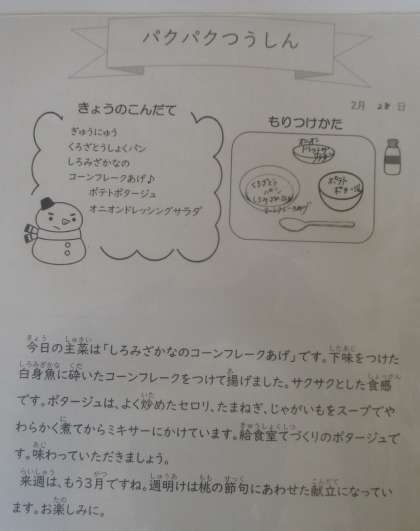 パクパクつうしん
2月 28 日
きょうのこんだて
ぎゅうにゅう
くろざとうしょくパン
しろみざかなの
コーンフレークあげ♪
ポテトポタージュ
オニオンドレッシングサラダ
もりつけかた
オニオン
ドレッシング
サラダ
くろざとう
パン
しろみざかなの
コーンフレークあげ
ポテト
ポタージュ
今日の主菜は「しろみざかなのコーンフレークあげ」です。下味をつけた
白身魚に砕いたコーンフレークをつけて揚げました。サクサクとした食感
です。ポタージュは、よく炒めたセロリ、たまねぎ、じゃがいもをスープでや
わらかく煮てからミキサーにかけています。給食室てづくりのポタージュで
す。味わっていただきましょう。
来週は、もう3月ですね。週明けは桃の節句にあわせた献立になってい
ます。お楽しみに。